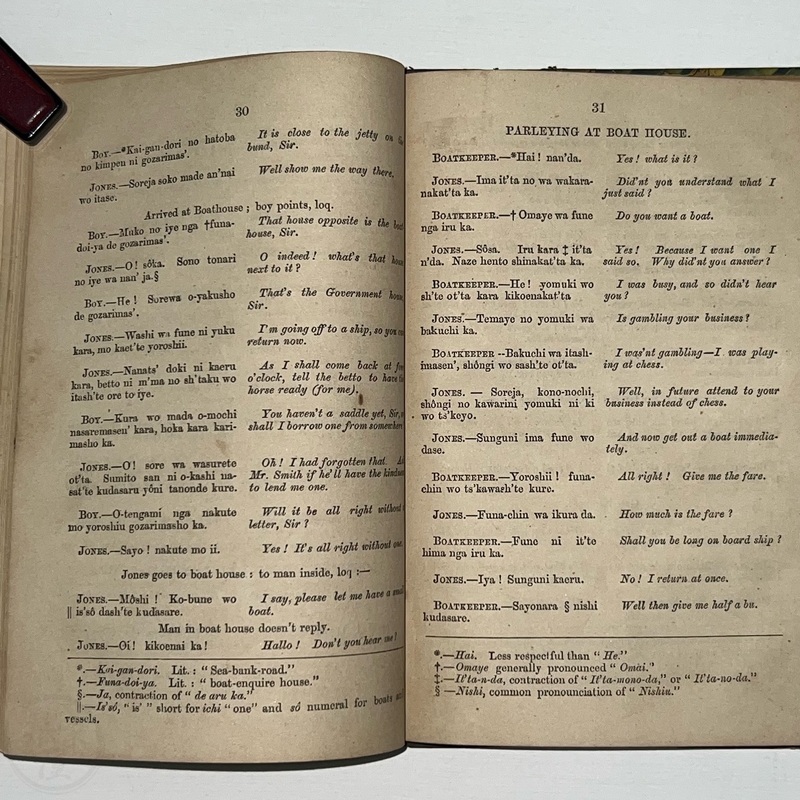 30
BOY.—*Kai-gan-dori no hatoba
no kimpen ni gozarimas'.
It is close to the jetty on
bund, Sir.
JONES.—Soreja soko made an'nai
wo itase.
Well show me the way there.
Arrived at Boathouse ; boy points, loq.
BOY.—Muko no iye nga †funa-
doi-ya de gozarimas'.
That house opposite is the boat
house, Sir.
JONES.—O! sôka. Sono tonari
no iye wa nan' ja.§
O indeed! what's that house
next to it ?
BOY.—He ! Sorewa o-yakusho
de gozarimas'.
That's the Government house,
Sir.
JONES.—Washi wa fune ni yuku
kara, mo kaet'te yoroshii.
I'm going off to a ship, so you can
return now.
JONES.—Nanats' doki ni kaeru
kara, betto ni m'ma no sh'taku wo
itash'te ore to iye.
As I shall come back at
o'clock, tell the betto to have the
horse ready (for me).
BOY.—Kura wo mada o-mochi
nasaremasen' kara, hoka kara kari-
masho ka.
You haven't a saddle yet, Sir,
shall I borrow one from somewhere
JONES.—O! sore wa wasurete
ot'ta. Sumito san ni o-kashi na-
sat'te kudasaru yôni tanonde kure.
Oh! I had forgotten that.
Mr. Smith if he'll have the kindness
to lend me one.
BOY.—O-tengami nga nakute
mo yoroshiu gozarimasho ka.
Will it be all right without
letter, Sir ?
JONES.—Sayo ! nakute mo ii.
Yes ! It's all right without one.
Jones goes to boat house : to man inside, loq :—
JONES.—Môshi ! Ko-bune wo
|| is'sô dash'te kudasare.
I say, please let me have a small
boat.
Man in boat house doesn't reply.
JONES.—Oi! kikoenai ka!
Hallo ! Don't you hear me!
*.—Kai-gan-dori. Lit. : " Sea-bank-road."
†.—Funa-doi-ya. Lit. : " boat-enquire house."
§.—Ja, contraction of " de aru ka."
||.—Is'sô, " is' " short for ichi " one" and sô numeral for boats and
vessels.
31
PARLEYING AT BOAT HOUSE.
BOATKEEPER.—*Hai! nan'da.
Yes! what is it ?
JONES.—Ima it'ta no wa wakara-
nakat'ta ka.
Did'nt you understand what I
just said ?
BOATKEEPER.—† Omaye wa fune
nga iru ka.
Do you want a boat.
JONES.—Sôsa. Iru kara ‡ it'ta
n'da. Naze hento shinakat'ta ka.
Yes! Because I want one I
said so. Why did'nt you answer ?
BOATKEEPER.—He ! yomuki wo
sh'te ot'ta kara kikoenakat'ta
I was busy, and so didn't hear
you ?
JONES.—Temaye no yomuki wa
bakuchi ka.
Is gambling your business ?
BOATKEEPER --Bakuchi wa itash-
imasen', shôngi wo sash'te ot'ta.
I was'nt gambling—I was play-
ing at chess.
JONES. — Soreja, kono-nochi,
shôngi no kawarini yomuki ni ki
wo ts'keyo.
Well, in future attend to your
business instead of chess.
JONES.—Sunguni ima fune wo
dase.
And now get out a boat immedia-
tely.
BOATKEEPER.—Yoroshii ! funa-
chin wo ts'kawash'te kure.
All right ! Give me the fare.
JONES.—Funa-chin wa ikura da.
How much is the fare ?
BOATKEEPER.—Fune ni it'te
hima nga iru ka.
Shall you be long on board ship ?
JONES.—Iya ! Sunguni kaeru.
No! I return at once.
BOATKEEPER.—Sayonara § nishi
kudasare.
Well then give me half a bu.
*.—Hai. Less respectful than " He."
†.—Omaye generally pronounced " Omai."
‡.—It'ta-n-da, contraction of " It'ta-mono-da," or " It'ta-no-da."
§ —Nishi, common pronounciation of " Nishiu."